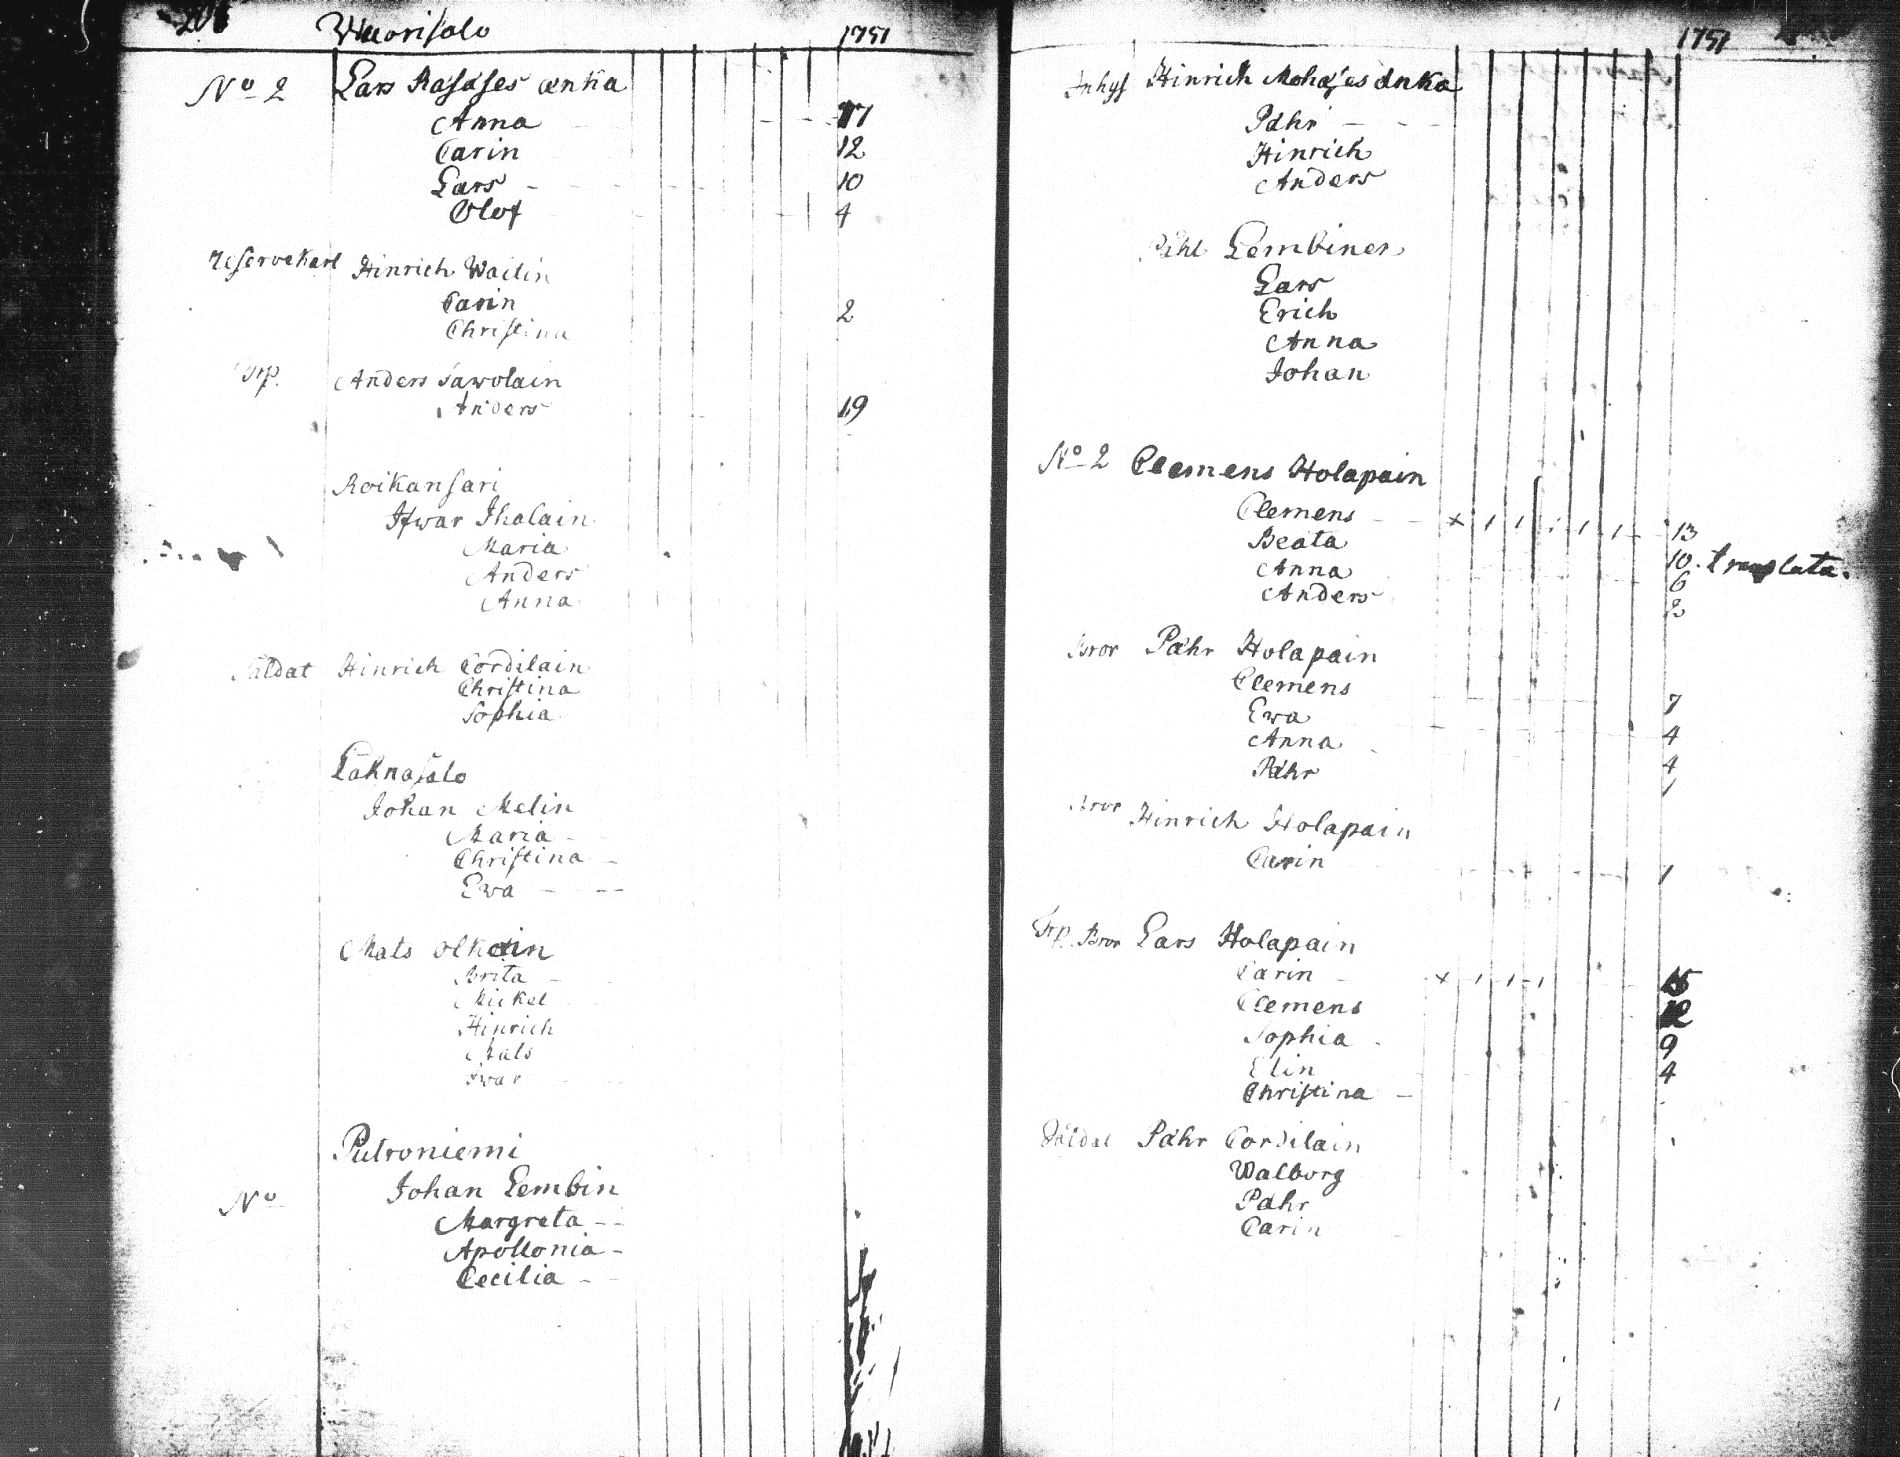 Wuorisalo 1751
No 2 Lars Räsäses änka
Anna 17
Carin 12
Lars 10
Olof 4
Reservekarl Hinrich Wailin
Carin 2
Christina
Trp. Anders Sawolain
Anders 19
Roikansari
Ifwar Ihalain
Maria
Anders
Anna
Saldat Hinrich Cordilain
Christina
Sophia
Lahnasalo
Johan Melin
Maria
Christina
Ewa
Mats Olkain
Brita
Mickel
Hinrich
Mats
Iwar
Putroniemi
No Johan Lembin
Margreta
Apollonia
Cecilia
1751
Inhys Hinrich Mohäses änka
Påhr
Hinrich
Anders
Påhl Lembinen
Lars
Erich
Anna
Johan
No 2 Clemens Holapain
Clemens x 1 1 1 1 1 13
Beata 10. translata.
Anna 6
Anders 2
Bror Påhr Holapain
Clemens 7
Ewa 4
Anna 4
Påhr 1
Bror Hinrich Holapain
Carin 1
Trp. Bror Lars Holapain
Carin x 1 1 1 15
Clemens 12
Sophia 9
Elin 4
Christina
Saldat Påhr Cordilain
Walborg
Påhr
Carin